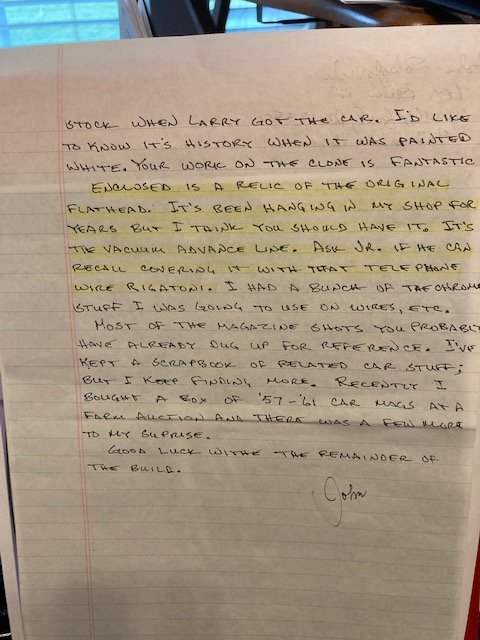 STOCK WHEN LARRY GOT THE CAR. I'D LIKE
TO KNOW IT'S HISTORY WHEN IT WAS PAINTED
WHITE. YOUR WORK ON THE CLONE IS FANTASTIC
ENCLOSED IS A RELIC OF THE ORIGINAL
FLATHEAD. IT'S BEEN HANGING IN MY SHOP FOR
YEARS BUT I THINK YOU SHOULD HAVE IT. IT'S
THE VACUUM ADVANCE LINE. ASK JR. IF HE CAN
RECALL COVERING IT WITH THAT TELEPHONE
WIRE RIGATONI. I HAD A BUNCH OF THE CHROME
STUFF I WAS GOING TO USE ON WIRES, ETC.
MOST OF THE MAGAZINE SHOTS YOU PROBABLY
HAVE ALREADY DUG UP FOR REFERENCE. I'VE
KEPT A SCRAPBOOK OF RELATED CAR STUFF;
BUT I KEEP FINDING MORE. RECENTLY I
BOUGHT A BOX OF '57-'61 CAR MAGS AT A
FARM AUCTION AND THERE WAS A FEW MORE
TO MY SUPRISE.
GOOD LUCK WITHE THE REMAINDER OF
THE BUILD.
John